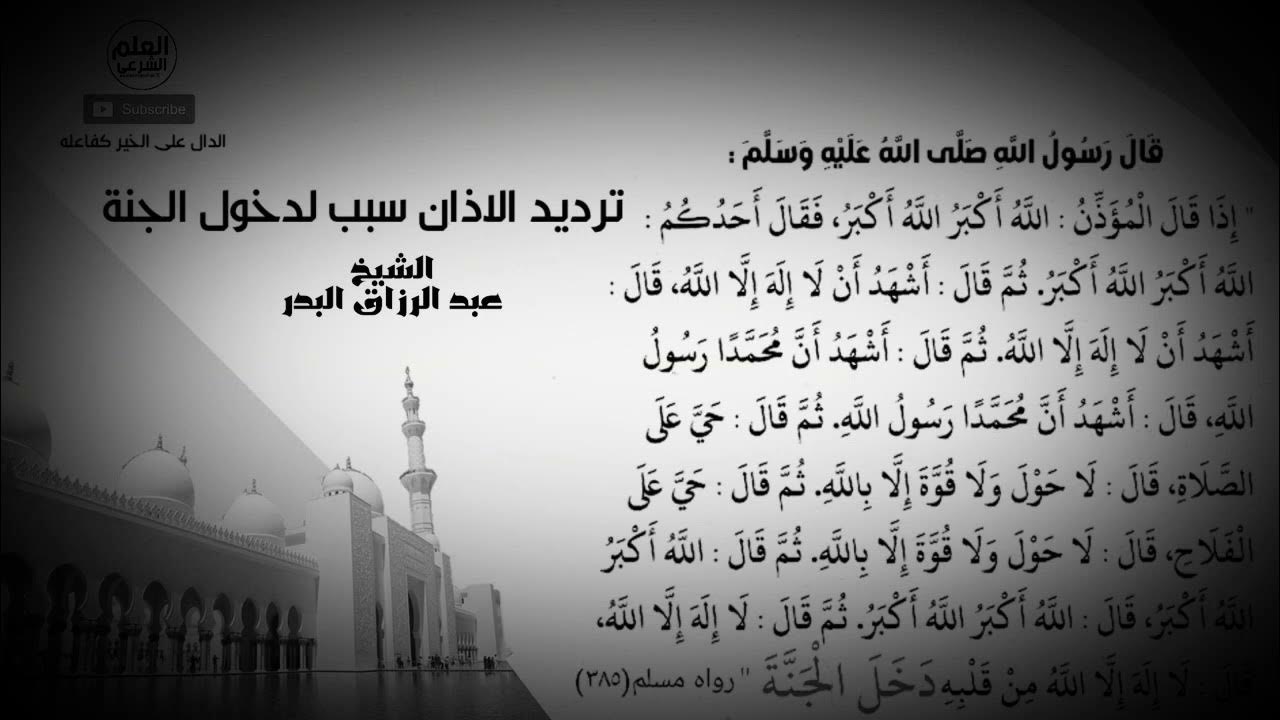 العلم
الشرعي
Subscribe
الدال على الخير كفاعله
ترديد الاذان سبب لدخول الجنة
الشيخ
عبد الرزاق البدر
قَالَ رَسُولُ اللَّهِ صَلَّى اللَّهُ عَلَيْهِ وَسَلَّمَ :
" إِذَا قَالَ الْمُؤَذِّنُ : اللَّهُ أَكْبَرُ اللَّهُ أَكْبَرُ، فَقَالَ أَحَدُكُمُ :
اللَّهُ أَكْبَرُ اللَّهُ أَكْبَرُ. ثُمَّ قَالَ : أَشْهَدُ أَنْ لَا إِلَهَ إِلَّا اللَّهُ، قَالَ :
أَشْهَدُ أَنْ لَا إِلَهَ إِلَّا اللَّهُ. ثُمَّ قَالَ : أَشْهَدُ أَنَّ مُحَمَّدًا رَسُولُ
اللَّهِ، قَالَ : أَشْهَدُ أَنَّ مُحَمَّدًا رَسُولُ اللَّهِ. ثُمَّ قَالَ : حَيَّ عَلَى
الصَّلَاةِ، قَالَ : لَا حَوْلَ وَلَا قُوَّةَ إِلَّا بِاللَّهِ. ثُمَّ قَالَ : حَيَّ عَلَى
الْفَلَاحِ، قَالَ : لَا حَوْلَ وَلَا قُوَّةَ إِلَّا بِاللَّهِ. ثُمَّ قَالَ : اللَّهُ أَكْبَرُ
اللَّهُ أَكْبَرُ، قَالَ : اللَّهُ أَكْبَرُ اللَّهُ أَكْبَرُ. ثُمَّ قَالَ : لَا إِلَهَ إِلَّا اللَّهُ،
قَالَ : لَا إِلَهَ إِلَّا اللَّهُ مِنْ قَلْبِهِ دَخَلَ الْجَنَّةَ " رواه مسلم(٣٨٥)